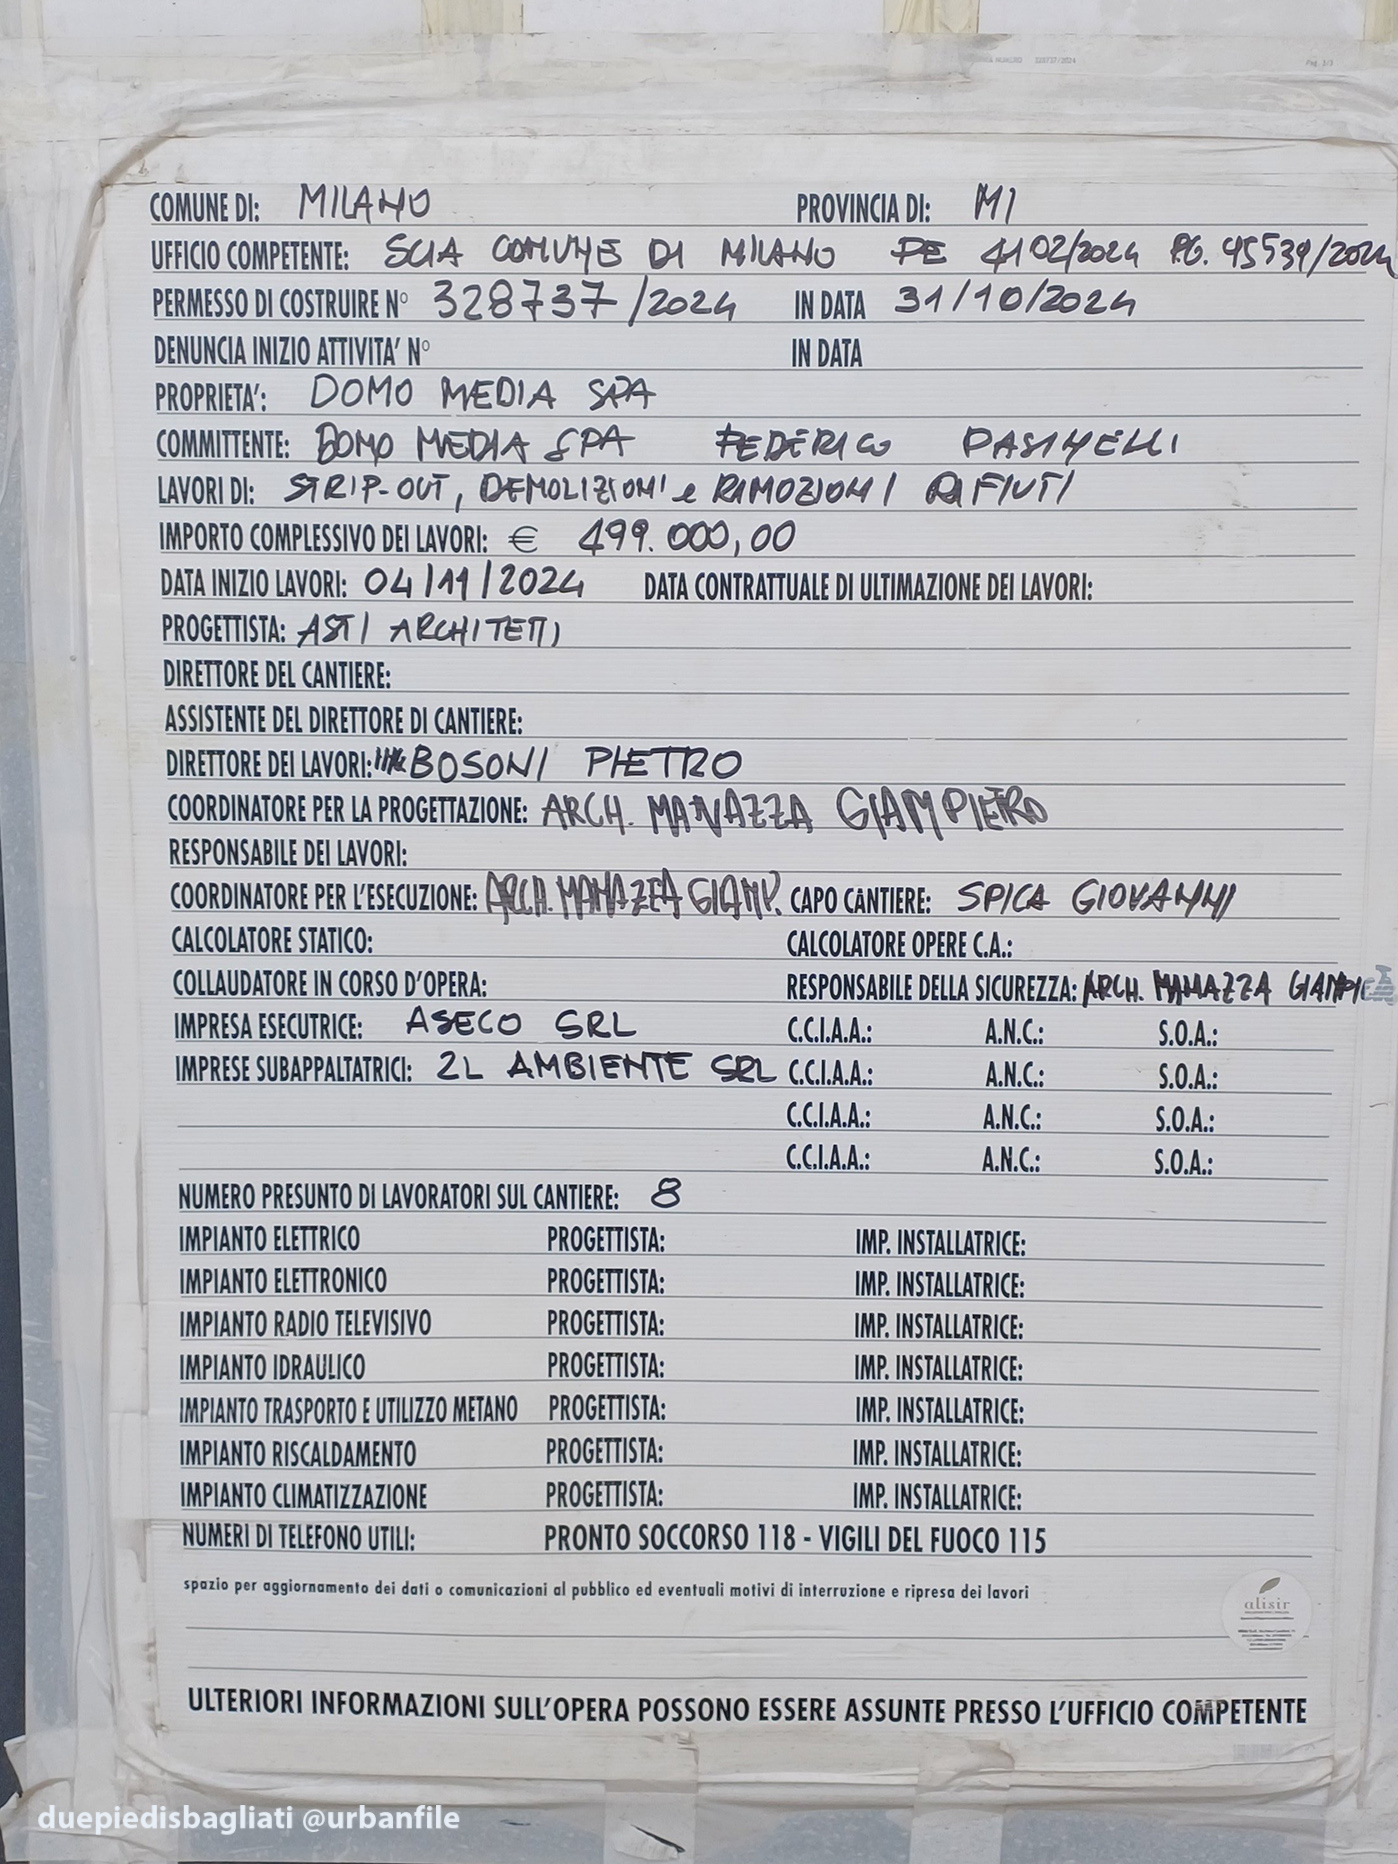 328737/2024 Pag. 3/3
COMUNE DI: MILANO PROVINCIA DI: MI
UFFICIO COMPETENTE: SCIA COMUNE DI MILANO PE 4102/2024 P.G. 45539/2024
PERMESSO DI COSTRUIRE N° 328737/2024 IN DATA 31/10/2024
DENUNCIA INIZIO ATTIVITA' N° IN DATA
PROPRIETA': DOMO MEDIA SPA
COMMITTENTE: DOMO MEDIA SPA FEDERICO PASINELLI
LAVORI DI: STRIP-OUT, DEMOLIZIONI e RIMOZIONI RIFIUTI
IMPORTO COMPLESSIVO DEI LAVORI: € 499.000,00
DATA INIZIO LAVORI: 04/11/2024 DATA CONTRATTUALE DI ULTIMAZIONE DEI LAVORI:
PROGETTISTA: ASTI ARCHITETTI
DIRETTORE DEL CANTIERE:
ASSISTENTE DEL DIRETTORE DI CANTIERE:
DIRETTORE DEI LAVORI: BOSONI PIETRO
COORDINATORE PER LA PROGETTAZIONE: ARCH. MANAZZA GIAMPIETRO
RESPONSABILE DEI LAVORI:
COORDINATORE PER L'ESECUZIONE: ARCH. MANAZZA GIAMP. CAPO CANTIERE: SPICA GIOVANNI
CALCOLATORE STATICO: CALCOLATORE OPERE C.A.:
COLLAUDATORE IN CORSO D'OPERA: RESPONSABILE DELLA SICUREZZA: ARCH. MANAZZA
IMPRESA ESECUTRICE: ASECO SRL C.C.I.A.A.: A.N.C.: S.O.A.:
IMPRESE SUBAPPALTATRICI: 2L AMBIENTE SRL C.C.I.A.A.: A.N.C.: S.O.A.:
C.C.I.A.A.: A.N.C.: S.O.A.:
C.C.I.A.A.: A.N.C.: S.O.A.:
NUMERO PRESUNTO DI LAVORATORI SUL CANTIERE: 8
IMPIANTO ELETTRICO PROGETTISTA: IMP. INSTALLATRICE:
IMPIANTO ELETTRONICO PROGETTISTA: IMP. INSTALLATRICE:
IMPIANTO RADIO TELEVISIVO PROGETTISTA: IMP. INSTALLATRICE:
IMPIANTO IDRAULICO PROGETTISTA: IMP. INSTALLATRICE:
IMPIANTO TRASPORTO E UTILIZZO METANO PROGETTISTA: IMP. INSTALLATRICE:
IMPIANTO RISCALDAMENTO PROGETTISTA: IMP. INSTALLATRICE:
IMPIANTO CLIMATIZZAZIONE PROGETTISTA: IMP. INSTALLATRICE:
NUMERI DI TELEFONO UTILI: PRONTO SOCCORSO 118 - VIGILI DEL FUOCO 115
spazio per aggiornamento dei dati o comunicazioni al pubblico ed eventuali motivi di interruzione e ripresa dei lavori
alisir
ULTERIORI INFORMAZIONI SULL'OPERA POSSONO ESSERE ASSUNTE PRESSO L'UFFICIO COMPETENTE
duepiedisbagliati @urbanfile